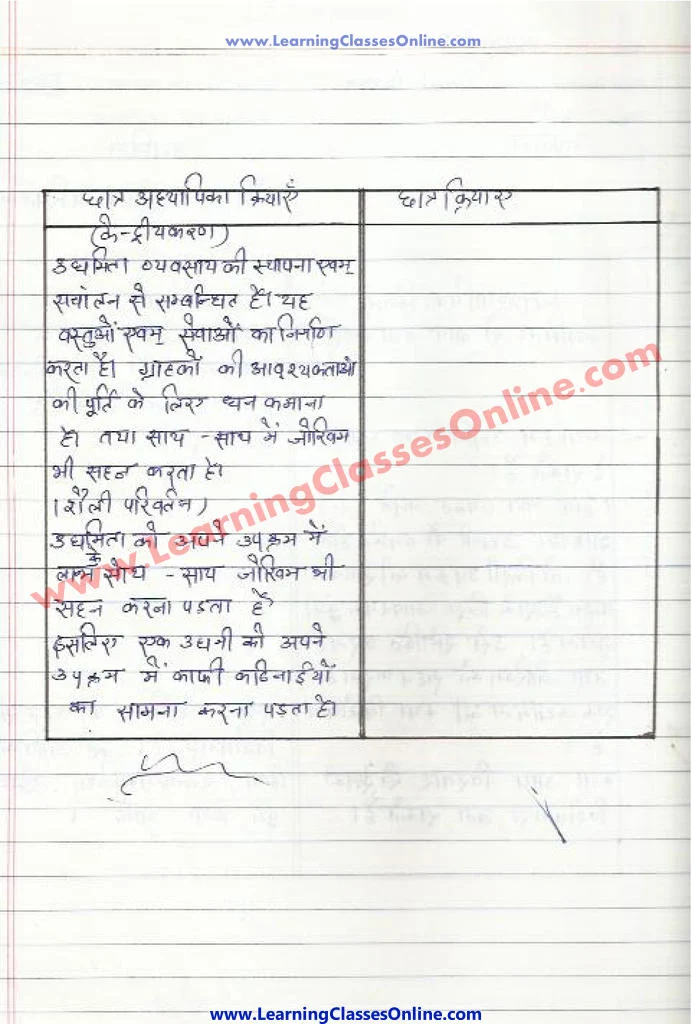 www.LearningClassesOnline.com
छात्र अध्यापिका क्रियाएँ
छात्र क्रियाएं
(केन्द्रीयकरण)
उधमिता व्यवसाय की स्थापना एवम्
संचालन से सम्बन्धित है। यह
वस्तुओं एवम् सेवाओं का निर्माण
करता है। ग्राहकों की आवश्यकताओ
की पूर्ति के लिए धन कमाना
है। तथा साथ - साथ में जोखिम
भी सहन करता है।
(शैली परिवर्तन)
उधमिता को अपने उपक्रम में
लाभ के साथ - साथ जोखिम भी
सहन करना पड़ता है
इसलिए एक उधमी को अपने
उपक्रम में काफी कठिनाईयों
का सामना करना पड़ता है।
www.LearningClassesOnline.com
www.LearningClassesOnline.com